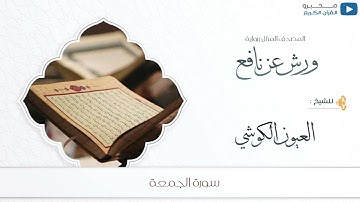 مخبرو
القرآن الكريم
المصحف المرتل برواية
ورش عن نافع
للشيخ :
العيون الكوشي
سورة الجمعة